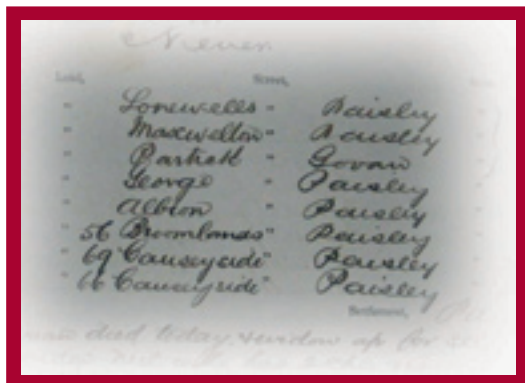 Street,
" Lonewells " Paisley
" Maxwelton " Paisley
" Partick " Govan
" George " Paisley
" Albion Paisley
" 56 Broomlands " Paisley
" 69 Causeyside " Paisley
" 66 Causeyside " Paisley
Settlement,
died today widow up for